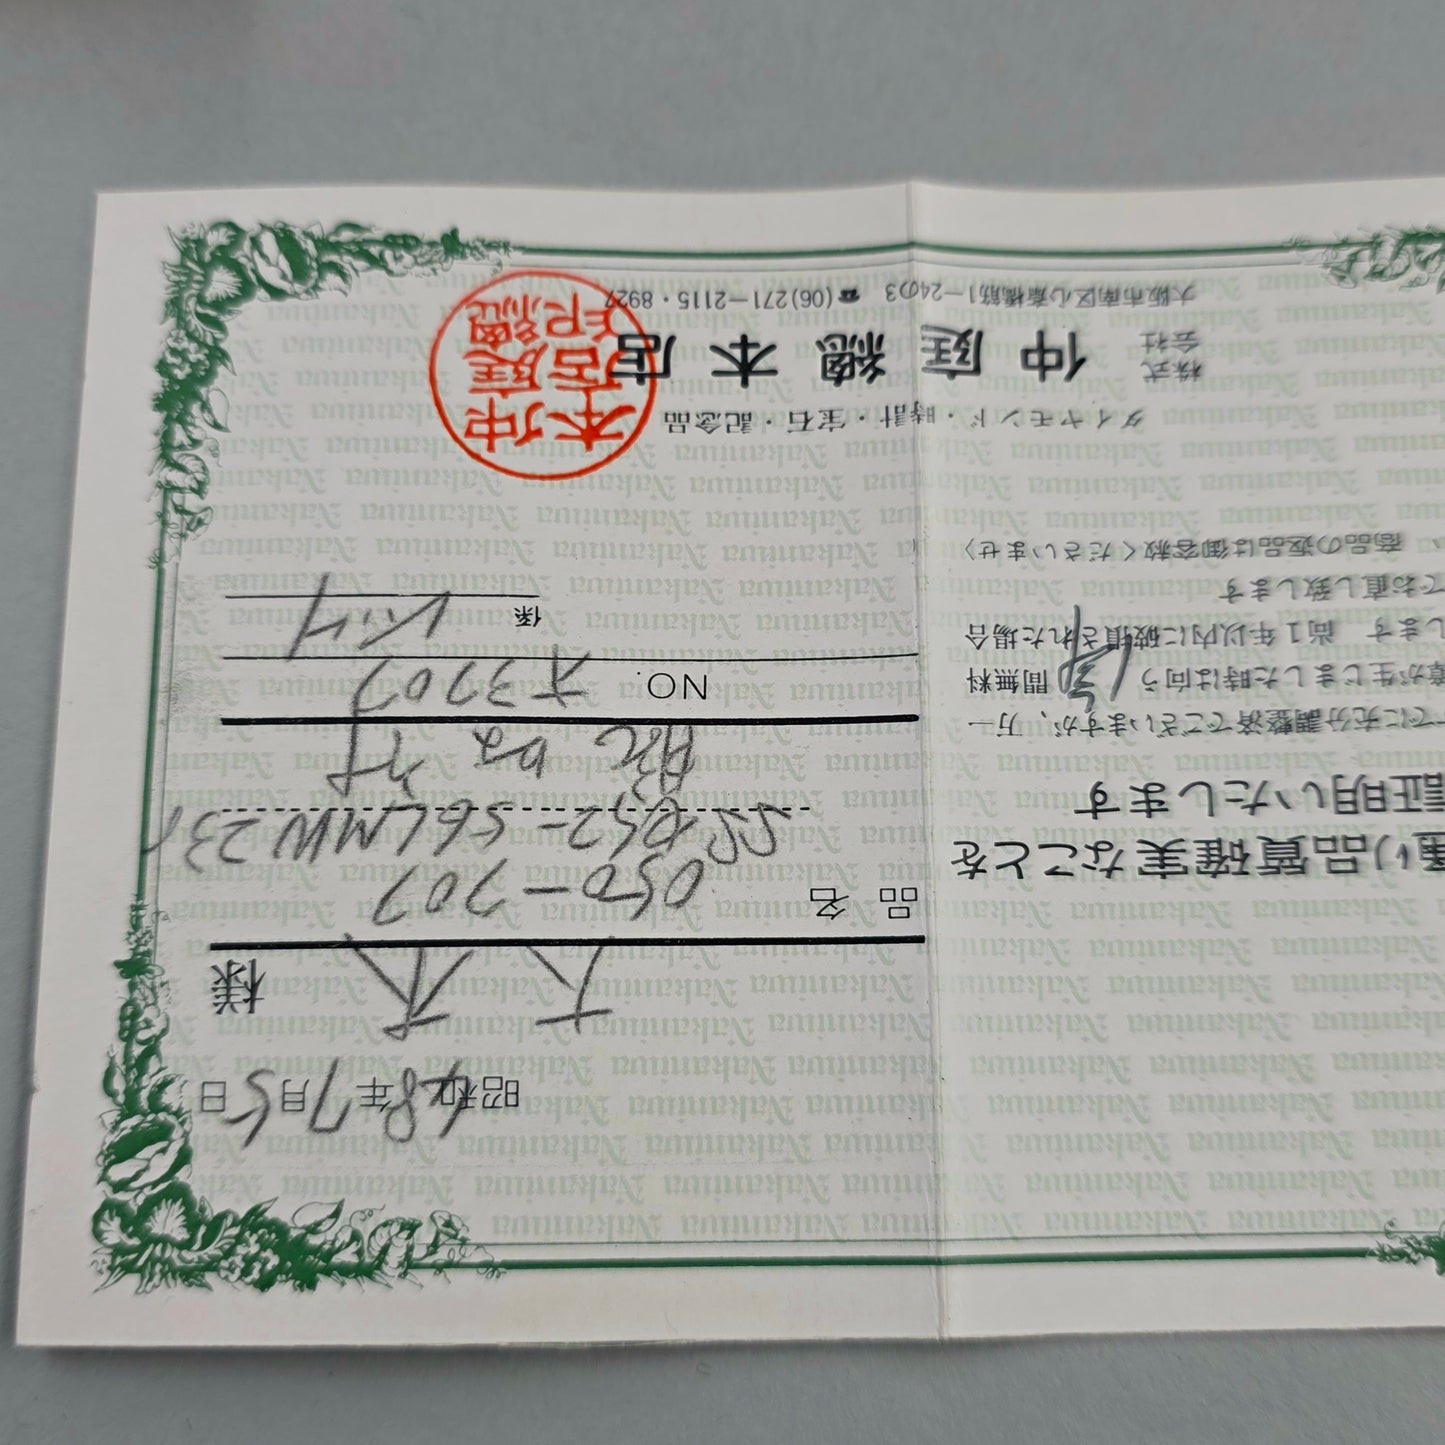 昭和48年7月5日
大木 様
品名 050-707
5642-
NO. 3707
係
通り品質確実なことを
証明いたします
でに充分調整済でございますが、万一
障が生じました時は向う 間無料
します 尚1年以内に破損された場合
でお直し致します
商品の返品は御容赦くださいませ)
ダイヤモンド・時計・宝石・記念品
株式会社 仲庭總本店
大阪市南区心斎橋筋1-24の3 ☎(06)271-2115・8927
仲庭總本店印
Nakaniwa